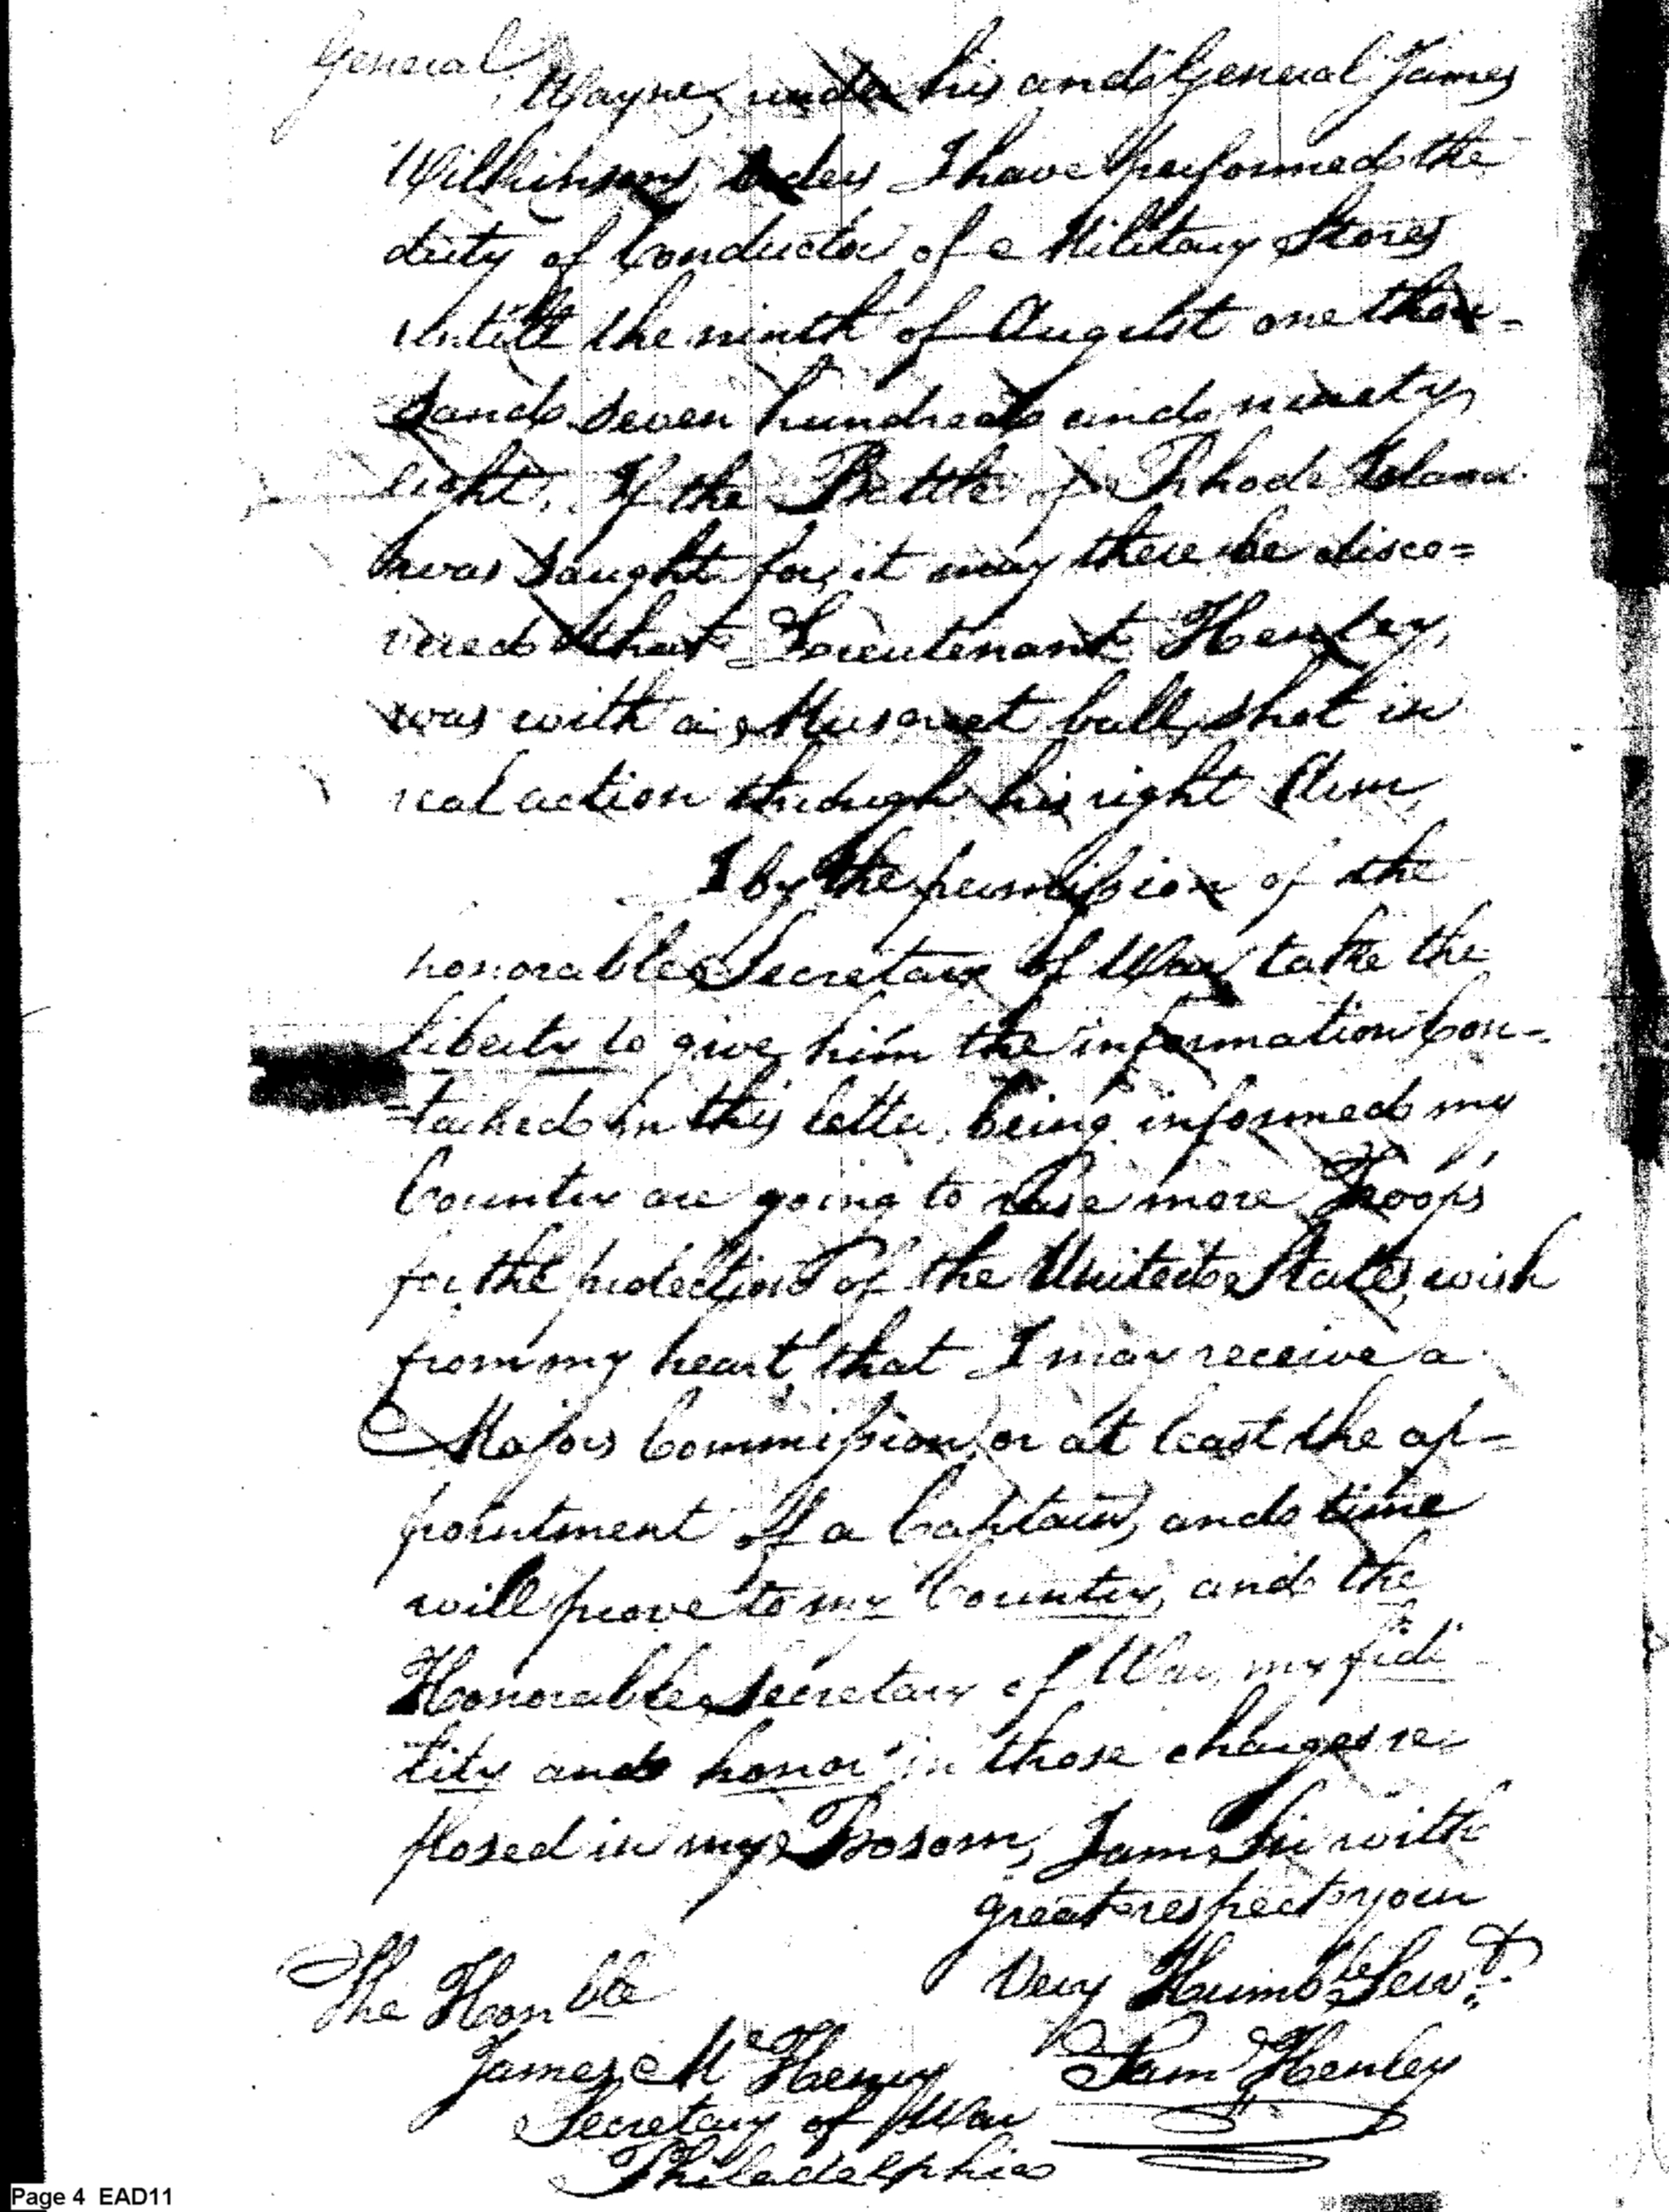 General
Wayne, under his and General James
Wilkinson, Orders I have performed the
duty of Conductor of Military Stores
untill the ninth of August one thou-
sand seven hundred and ninety
eight, If the Battle of Rhode Island
was saught for, it may there be disco=
vered that Lieutenant Henley,
was with a Musquet ball, shot in
real action through his right Arm,
I by the permission of the
honorable Secretary of War take the
liberty to give him the information Con-
-tained in this letter, being informed my
Country are going to raise more Troops
for the protection of the United States, wish
from my heart that I may receive a
Majors Commission, or at least the ap-
pointment of a Captain, and time
will prove to my Country, and the
Honorable Secretary of War, my fidi
lity and honor in those charges re-
posed in my Bosom, I am Sir with
great respect your
Very Humble Servt.
The Honble
Sam Henley
James McHenry
Secretary of War
Philadelphia
Page 4 EAD11